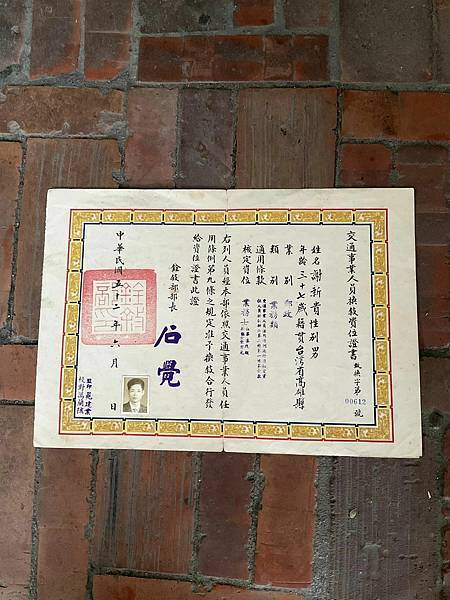 交通事業人員換敘資位證書
敘換字第
00612
號
姓名 謝新貴 性別 男
年齡 三十七歲 籍貫 台灣省高雄縣
業別 郵政
類別 業務類
適用條款
核定資位 業務士
右列人員經本部依照交通事業人員任
用條例第九條之規定准予換敘合行發
給資位證書此證
銓敘部部長 石覺
中華民國五十二年六月 日
監印
校對